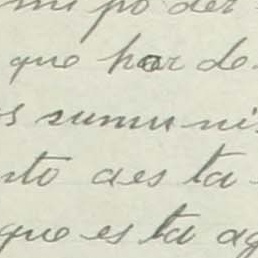 mi po der
que har de
s sumu nis
nto aes ta
que es ta ag